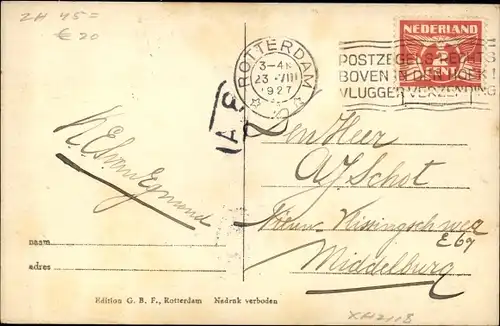 ZH 45=
€ 20
ROTTERDAM
3-4
23 VIII
1927
NEDERLAND
2
CENT
POSTZEGELS RECHTS
BOVEN IN DEN HOEK!
VLUGGER VERZENDING
Den Heer
A.J. Schot
Middelburg
E69
van Egmond
naam
adres
Edition G. B. F., Rotterdam Nadruk verboden
XH2113